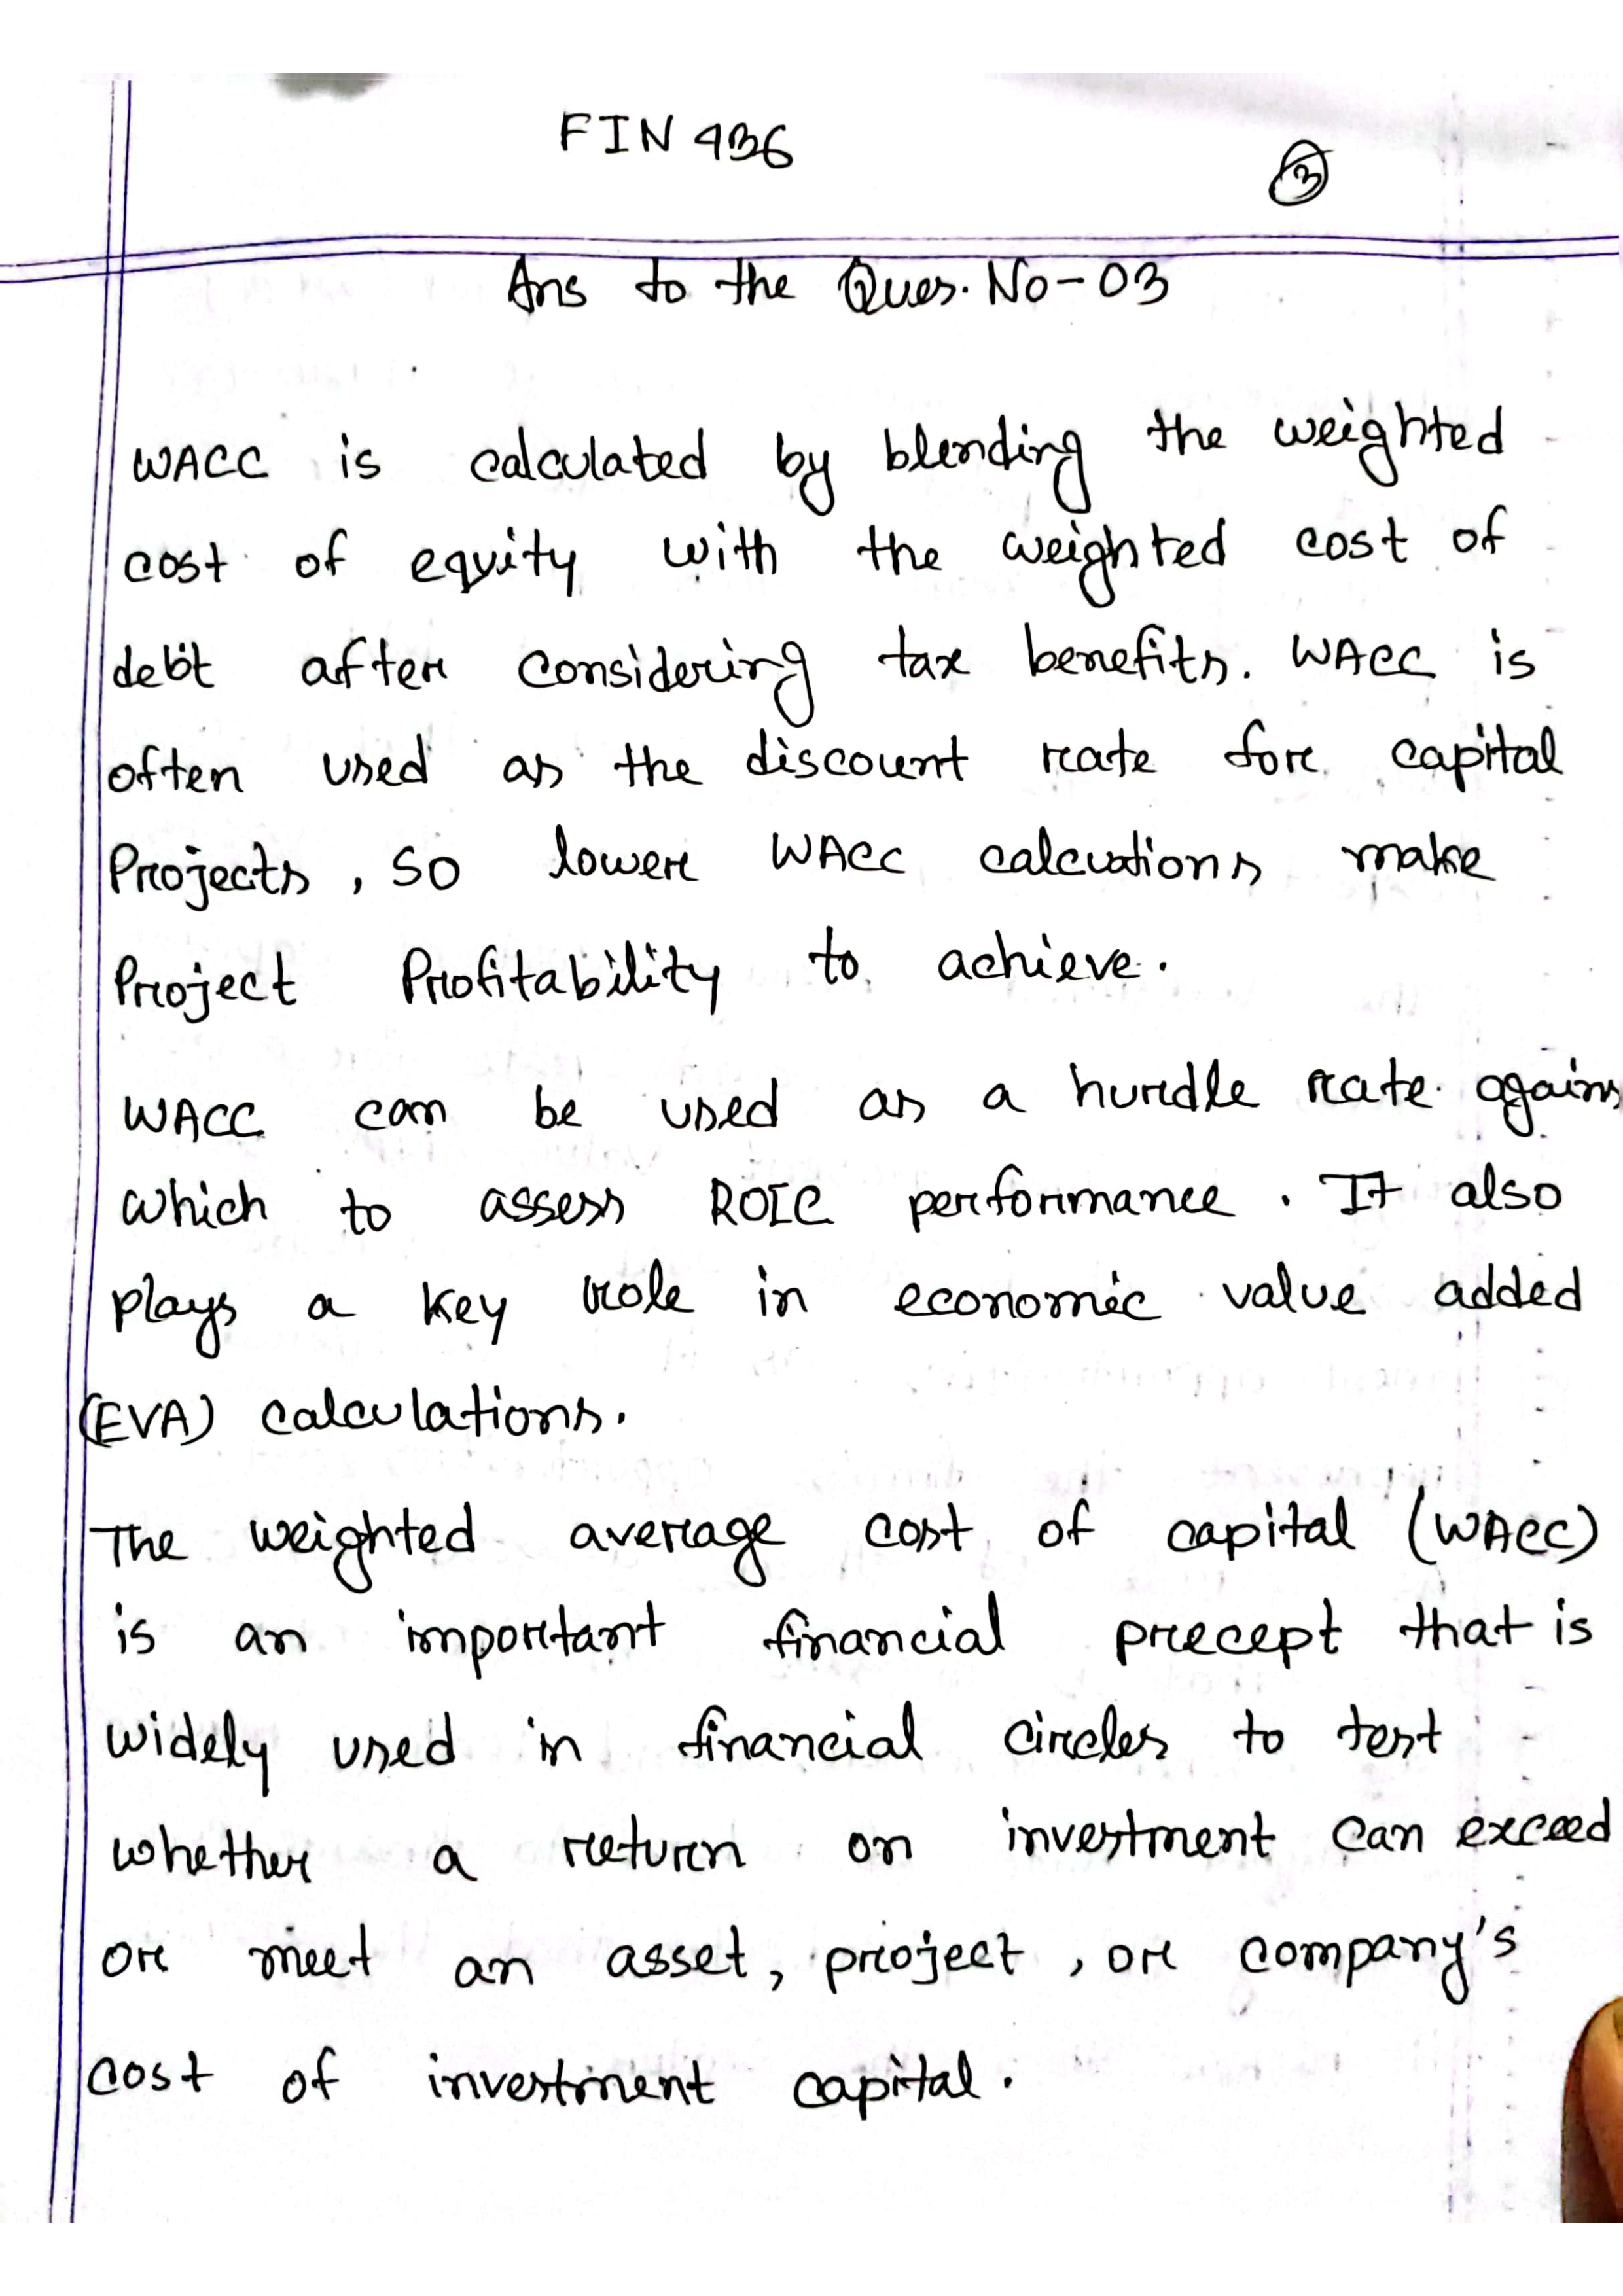 FIN 436
3
Ans to the Ques. No-03
WACC is calculated by blending the weighted
cost of equity with the weighted cost of
debt after considering tax benefits. WACC is
often used as the discount rate for capital
Projects, so lower WACC calcuations make
Project Profitability to achieve.
WACC can be used as a hurdle rate agains
which to assess ROIC performance. It also
plays a key role in economic value added
(EVA) calculations.
The weighted average cost of capital (WACC)
is an important financial precept that is
widely used in financial circles to test
whether a return on investment can exceed
or meet an asset, project, or company's
cost of investment capital.